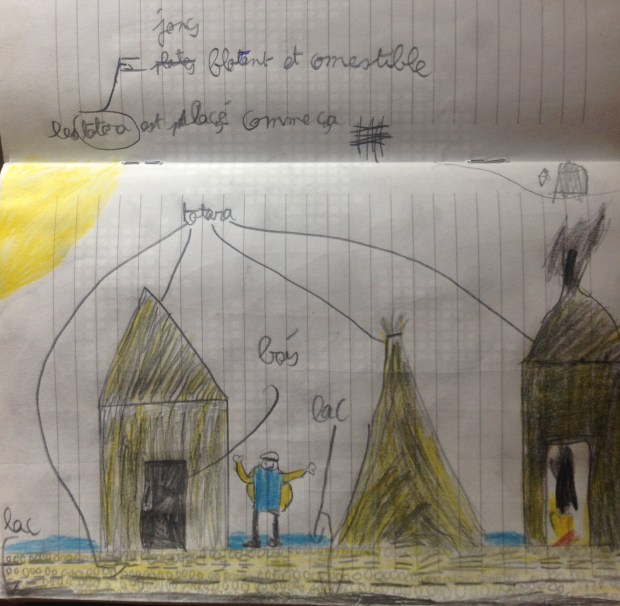 jonc
flotent et comestible
les totora est plaçé comme ça
totora
bois
lac
lac